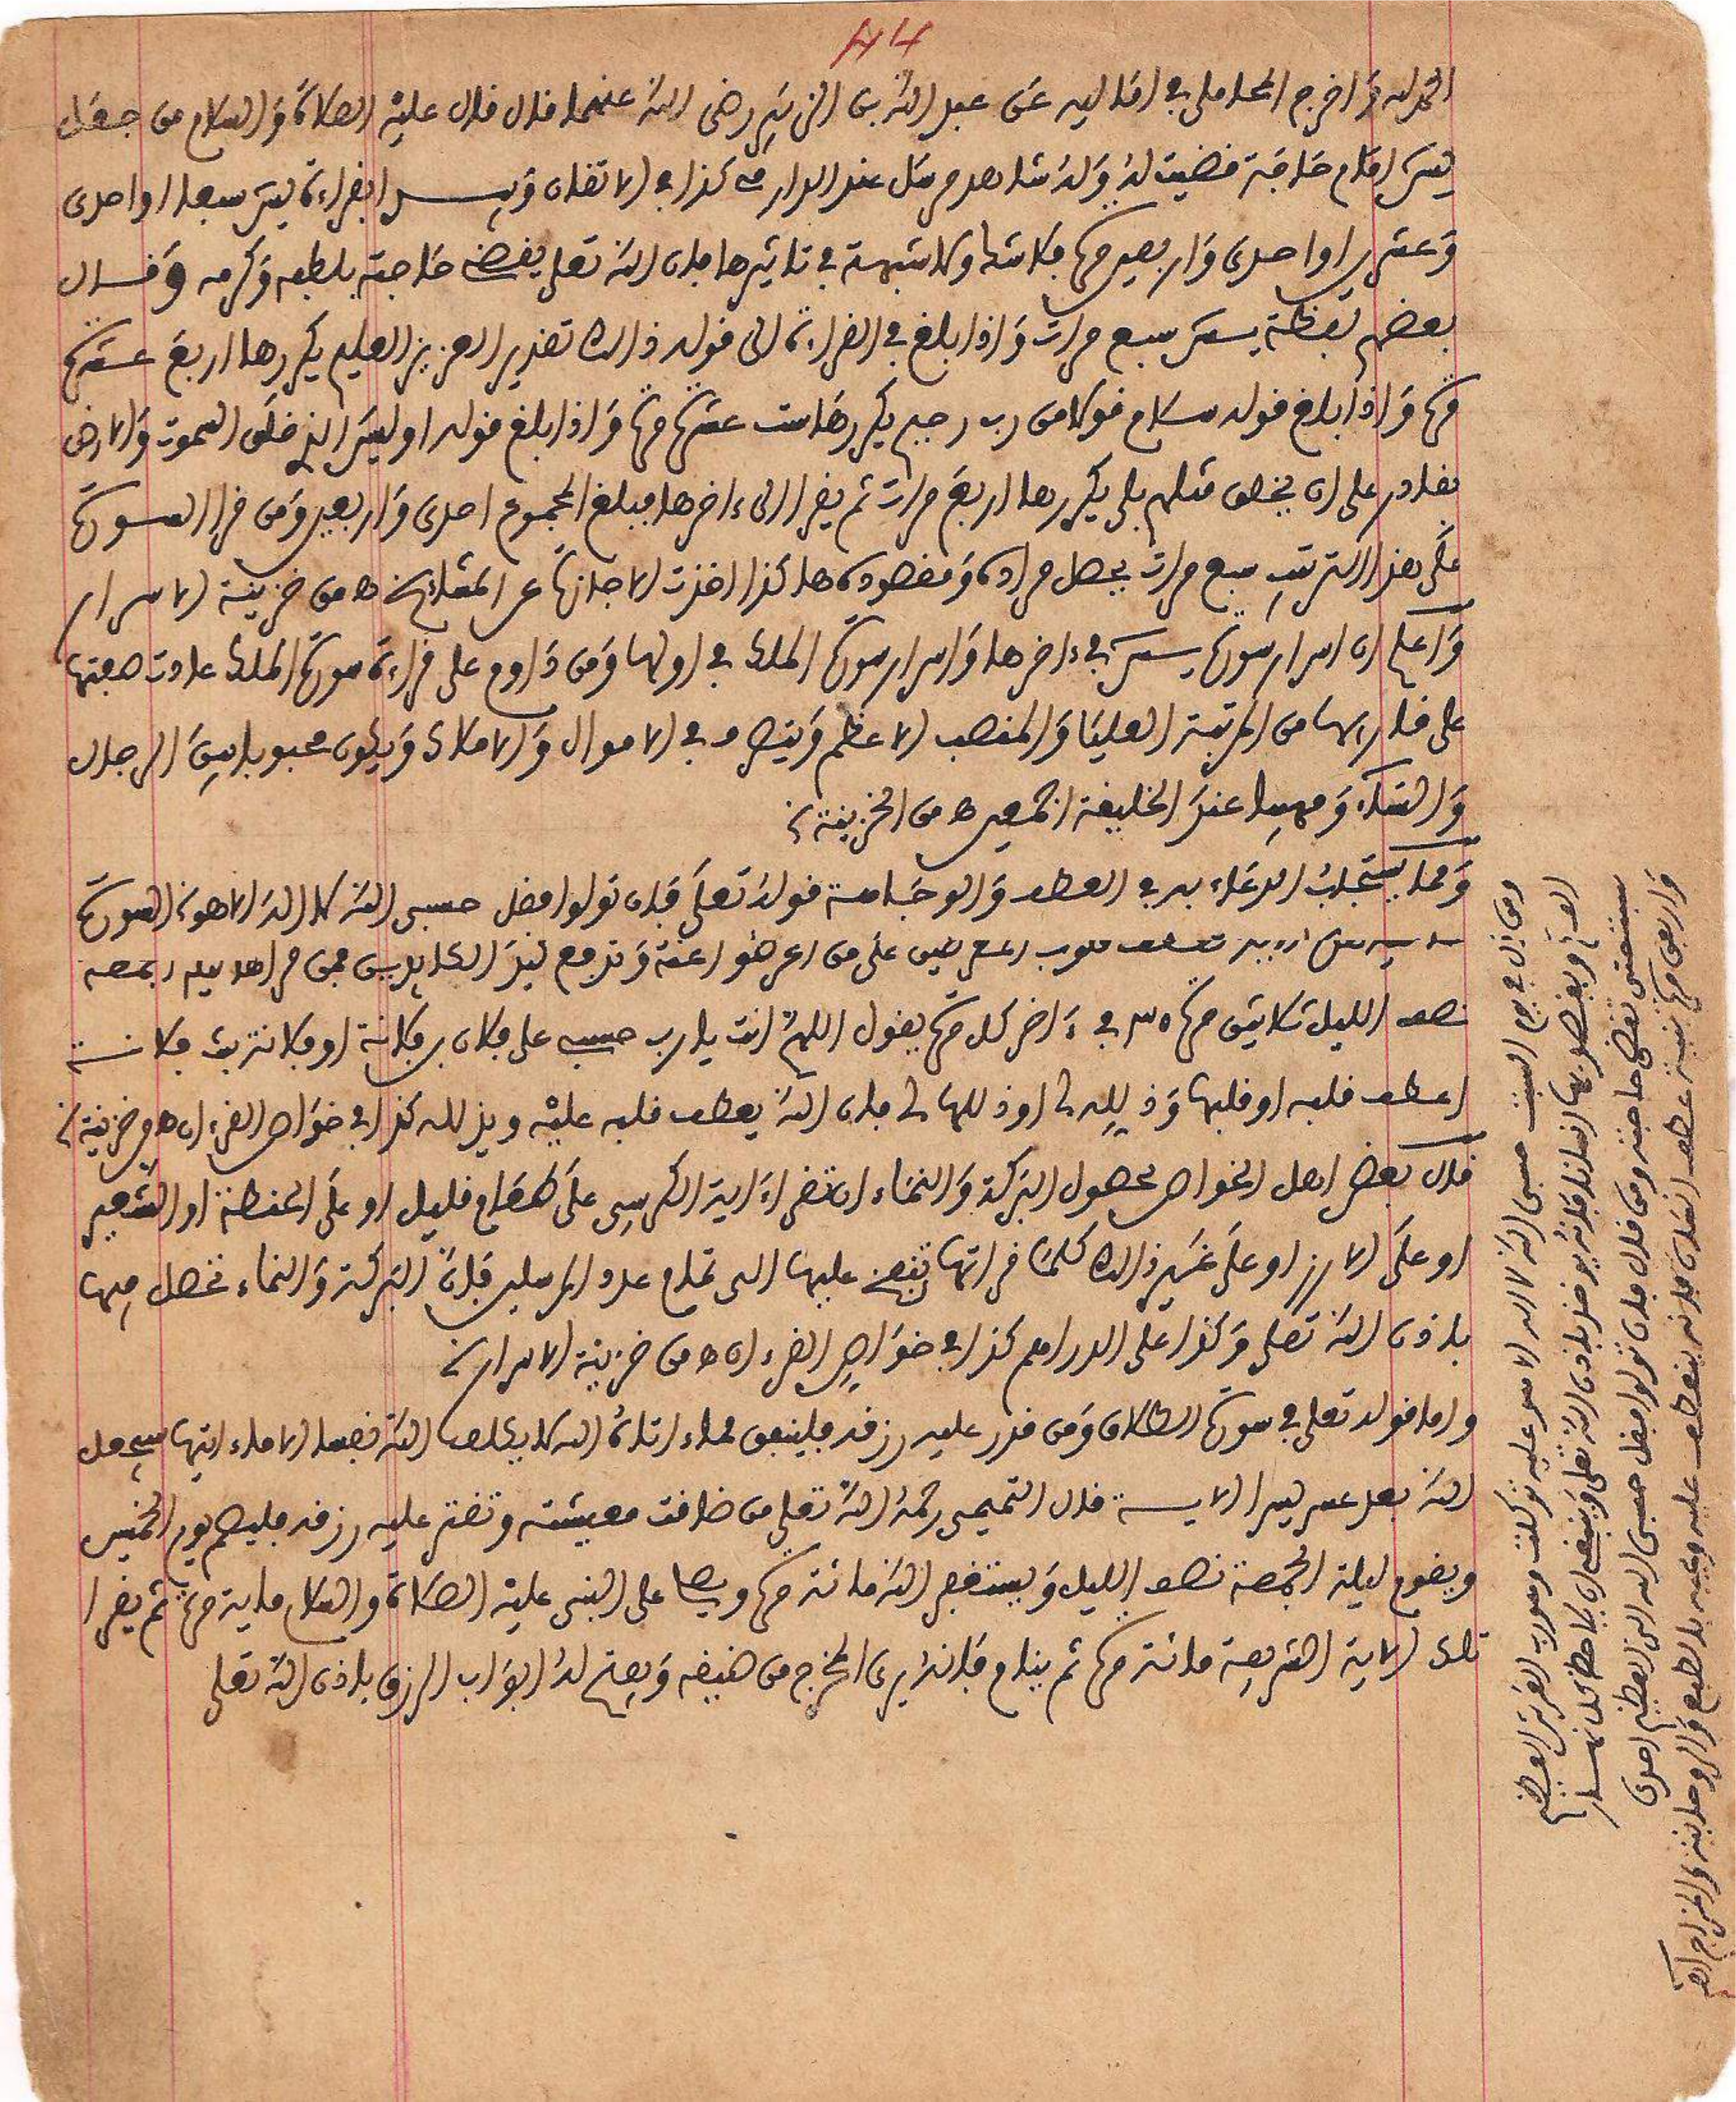 44
الحمد لله وَاخرج المحاملي في اماليه عن عبد الله بن الزبير رضي الله عنهما قال قال عليه الصلاة والسلام من جعل
يس امام حاجته قضيت له وله شاهد مرسل عند الدارمي كذا في الاتقان وَيس القراءة يس سبعا او احدى
وعشرين او احدى واربعين مرة بلا شك ولا شبهة في تاثيرها بان الله تعلى يقضي حاجته بلطفه وكرمه وقال
بعضهم بقضية يس سبع مرات وَاذا بلغ في القراءة الى قوله ذالك تقدير العزيز العليم يكررها اربع عشرة
مرة وَاذا بلغ قوله سلام قولا من رب رحيم يكررها ست عشرة مرة وَاذا بلغ قوله اوليس الذي خلق السموت والارض
بقادر على ان يخلق مثلهم بلى يكررها اربع مرات ثم يقرا الى ءاخرها فيبلغ المجموع احدى واربعين ومن قرا السورة
على هذا الترتيب سبع مرات يحصل مراده ومقصوده هاكذا اخذت الاجازة عن المشايخ ه من خزينة الاسرار
وَاعلم ان اسرار سورة يس في ءاخرها وَاسرار سورة الملك في اولها ومن داوم على قراءة سورة الملك علاوت همتها
على قاريها من المرتبة العليا والمنصب الاعظم ويتصرف في الاموال والاملاك ويكون محبوبا بين الرجال
والنساء ومهيبا عند الخليفة اجمعين ه من الخزينة
وَمما يستجلب الدعاء به في العطف والوجاهة قوله تعلى فإن تولوا فقل حسبي الله لا اله الا هو السورة
قلوب المعرضين على من اعرضوا عنه وترفع كيد الكايدين فمن قراها ليلة الجمعة
نصف الليل ثلاثين مرة في ءاخر كل مرة يقول اللهم انت يا رب حسبي على فلان بن فلانة او فلانة بنت فلانة
اعطف قلبه او قلبها وَذلله لي او ذللها لي فان الله يعطف قلبه عليه ويذلله كذا في خواص القرءان ه من خزينة
قال بعض اهل الخواص لحصول البركة والنماء ان تقرا ءاية الكرسي على طعام قليل او على الحنطة او الشعير
او على الارز او على غير ذالك كلما قراتها تنفخ عليها الى تمام عدد المرسلين فإن البركة والنماء تحصل فيها
باذن الله تعلى وكذا على الدراهم كذا في خواص القرءان ه من خزينة الاسرار
واما قوله تعلى في سورة الطلاق ومن قدر عليه رزقه فلينفق مما ءاتاه الله لا يكلف الله نفسا الا ما ءاتيها سيجعل
الله بعد عسر يسرا الاية قال التميمي رحمه الله تعلى من ضاقت معيشته وتقتر عليه رزقه فليصم يوم الخميس
ويقوم ليلة الجمعة نصف الليل ويستغفر الله مائة مرة ويصل على النبي عليه الصلاة والسلام ماية مرة ثم يقرا
تلك الاية الشريفة مائة مرة ثم ينام فإنه يرى المخرج من ضيقه ويفتح له ابواب الرزق باذن الله تعلى
ومن قال في يوم السبت حسبي الله لا اله الا هو عليه توكلت وهو رب العرش العظيم
باذن الله تعلى
تقضى حاجته ومن قال فإن تولوا فقل حسبي الله الى العظيم احدى
واربعين مرة بنية عطف انسان فإنه ينعطف عليه